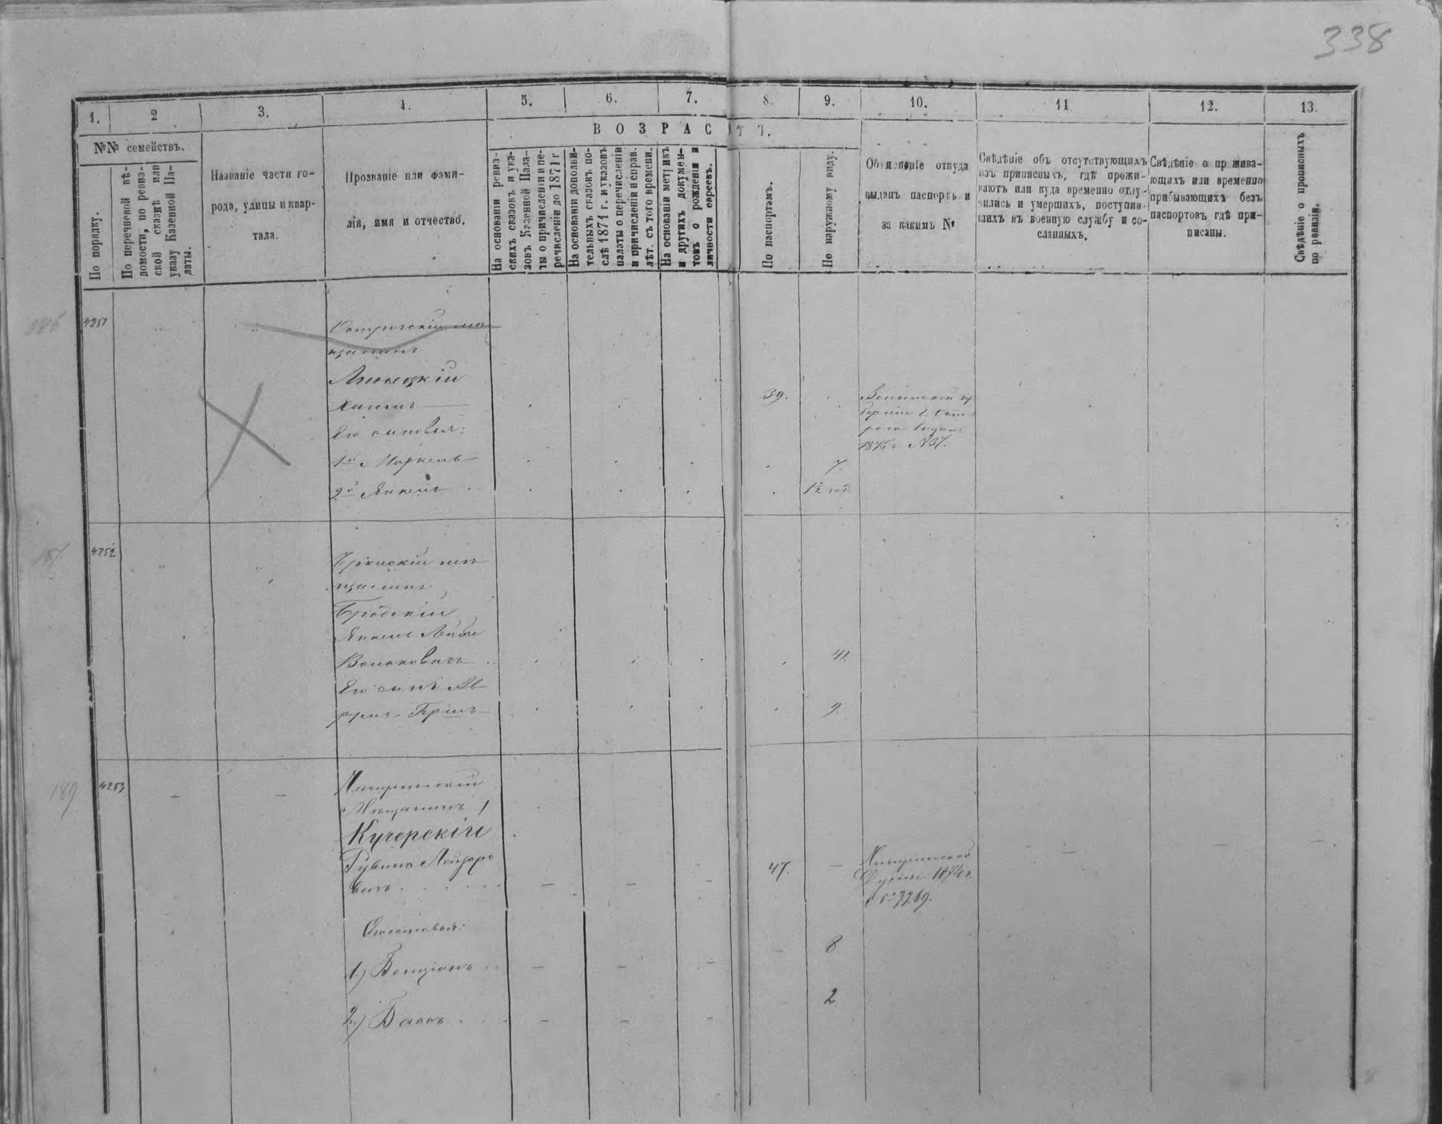 338
1.
2
3.
4.
5.
6.
7.
8.
9.
10.
11
12.
13.
ВОЗРАСТЪ.
№№ семействъ.
По порядку.
По перечневой вѣ-
домости, по ревиз-
ской сказкѣ или
указу Казенной Па-
латы.
Названіе части го-
рода, улицы и квар-
тала.
Прозваніе или фами-
лія, имя и отчество.
На основаніи ревиз-
скихъ сказокъ и ука-
зовъ Казенной Пала-
ты о причисленіи и пе-
речисленіи до 1871 г
На основаніи дополни-
тельныхъ сказокъ по-
слѣ 1871 г. и указовъ
палаты о перечисленіи
и причисленіи и справ.
лѣт. съ того времени.
На основаніи метрикъ
и другихъ докумен-
товъ о рожденіи и
личности евреевъ.
По паспортамъ.
По наружному виду.
Объясненіе откуда
выданъ паспортъ и
за какимъ №
Свѣдѣніе объ отсутствующихъ
изъ приписныхъ, гдѣ прожи-
ваютъ или куда временно отлу-
чились и умершихъ, поступив-
шихъ въ военную службу и со-
сланныхъ.
Свѣдѣніе о прожива-
ющихъ или временно
прибывающихъ безъ
паспортовъ гдѣ при-
писаны.
Свѣдѣніе о прописныхъ
по ревизіи.
186
4251
Острогскій мѣ-
щанинъ
Хаимъ
Его сыновья:
1й Моркель
2й Янкель
39.
7
1½ год
Волынской гу
берніи г. Ост
1876 г №37.
187
4252
мѣ-
щанинъ
Бродскій
Янкель Лейба
Волковичъ
Его сынъ Аб-
рамъ Гершъ
41
9.
189
4253
Чигиринскій
Мѣщанинъ
Кучерскій
Рувинъ Лейзеро
вичъ
47.
Чигиринской
Думы 1876 г.
№ 3269.
Сыновья:
1) Бенціонъ
8
2)
2